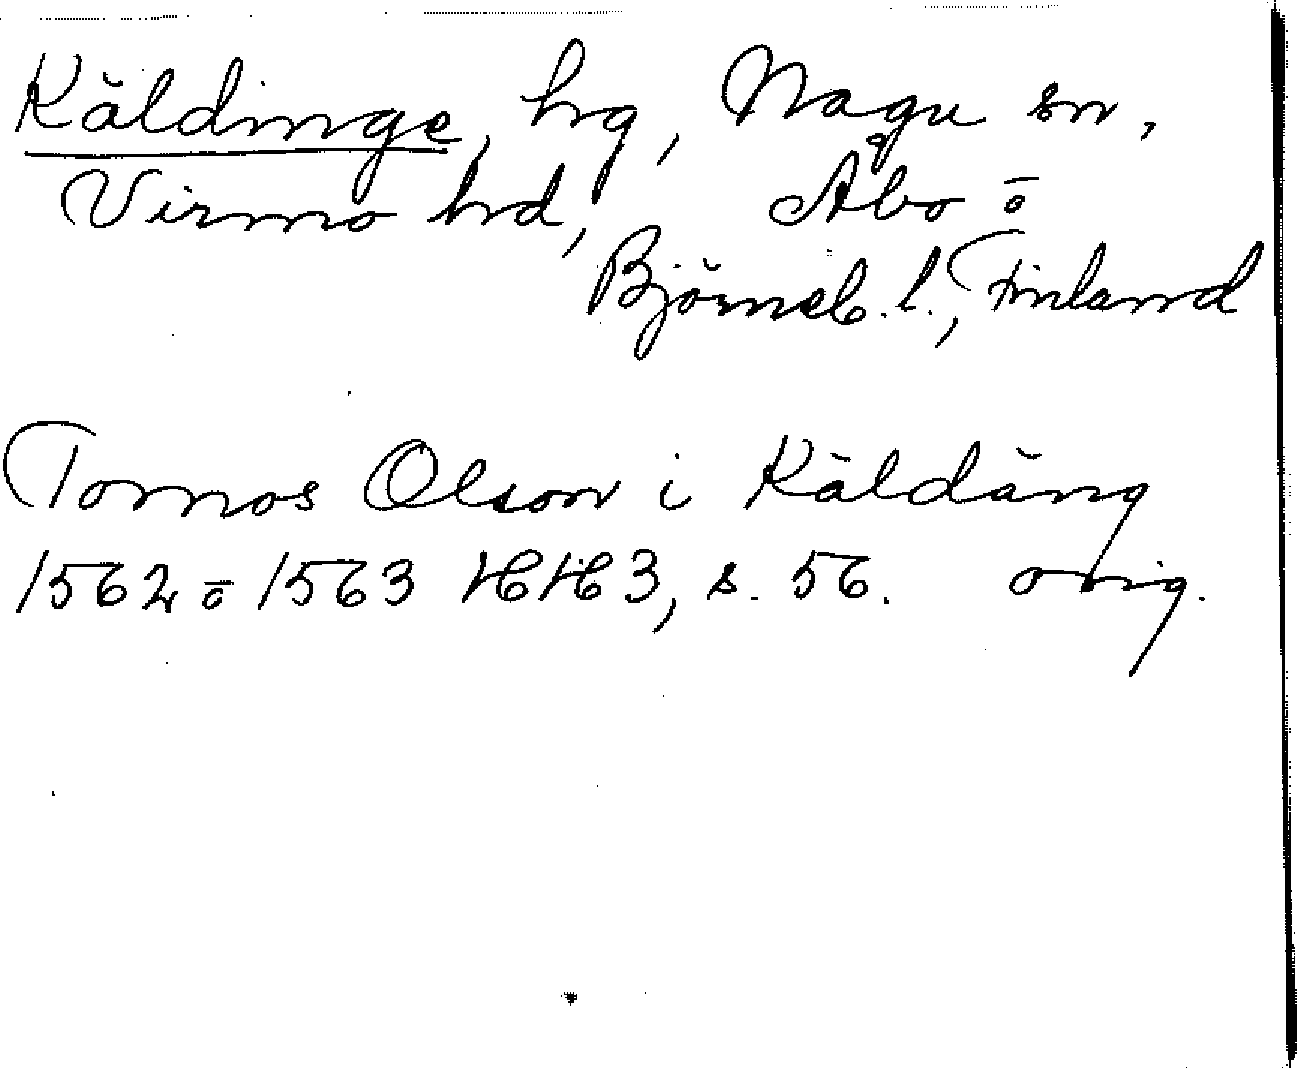 Käldinge, hg, Nagu sn,
Virmo hd, Åbo o
Björneb. l., Finland
Tomos Olson i Käldäng
1562 o 1563 HH 3, s. 56. orig.